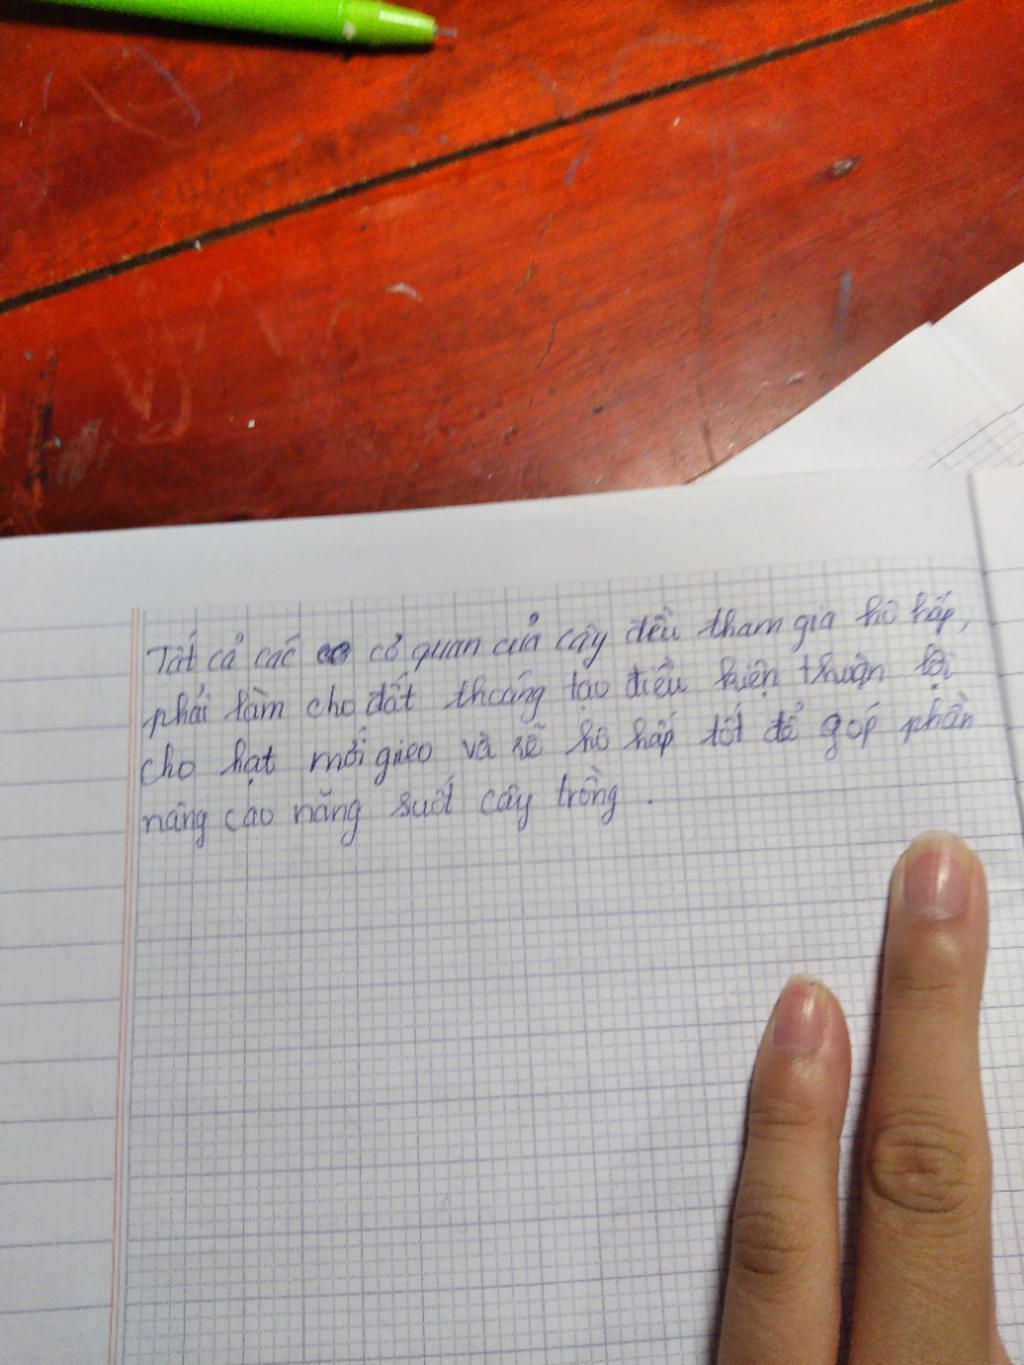 Tất cả các cơ quan của cây đều tham gia hô hấp,
phải làm cho đất thoáng tạo điều kiện thuận lợi
cho hạt mới gieo và rễ hô hấp tốt để góp phần
nâng cao năng suất cây trồng.